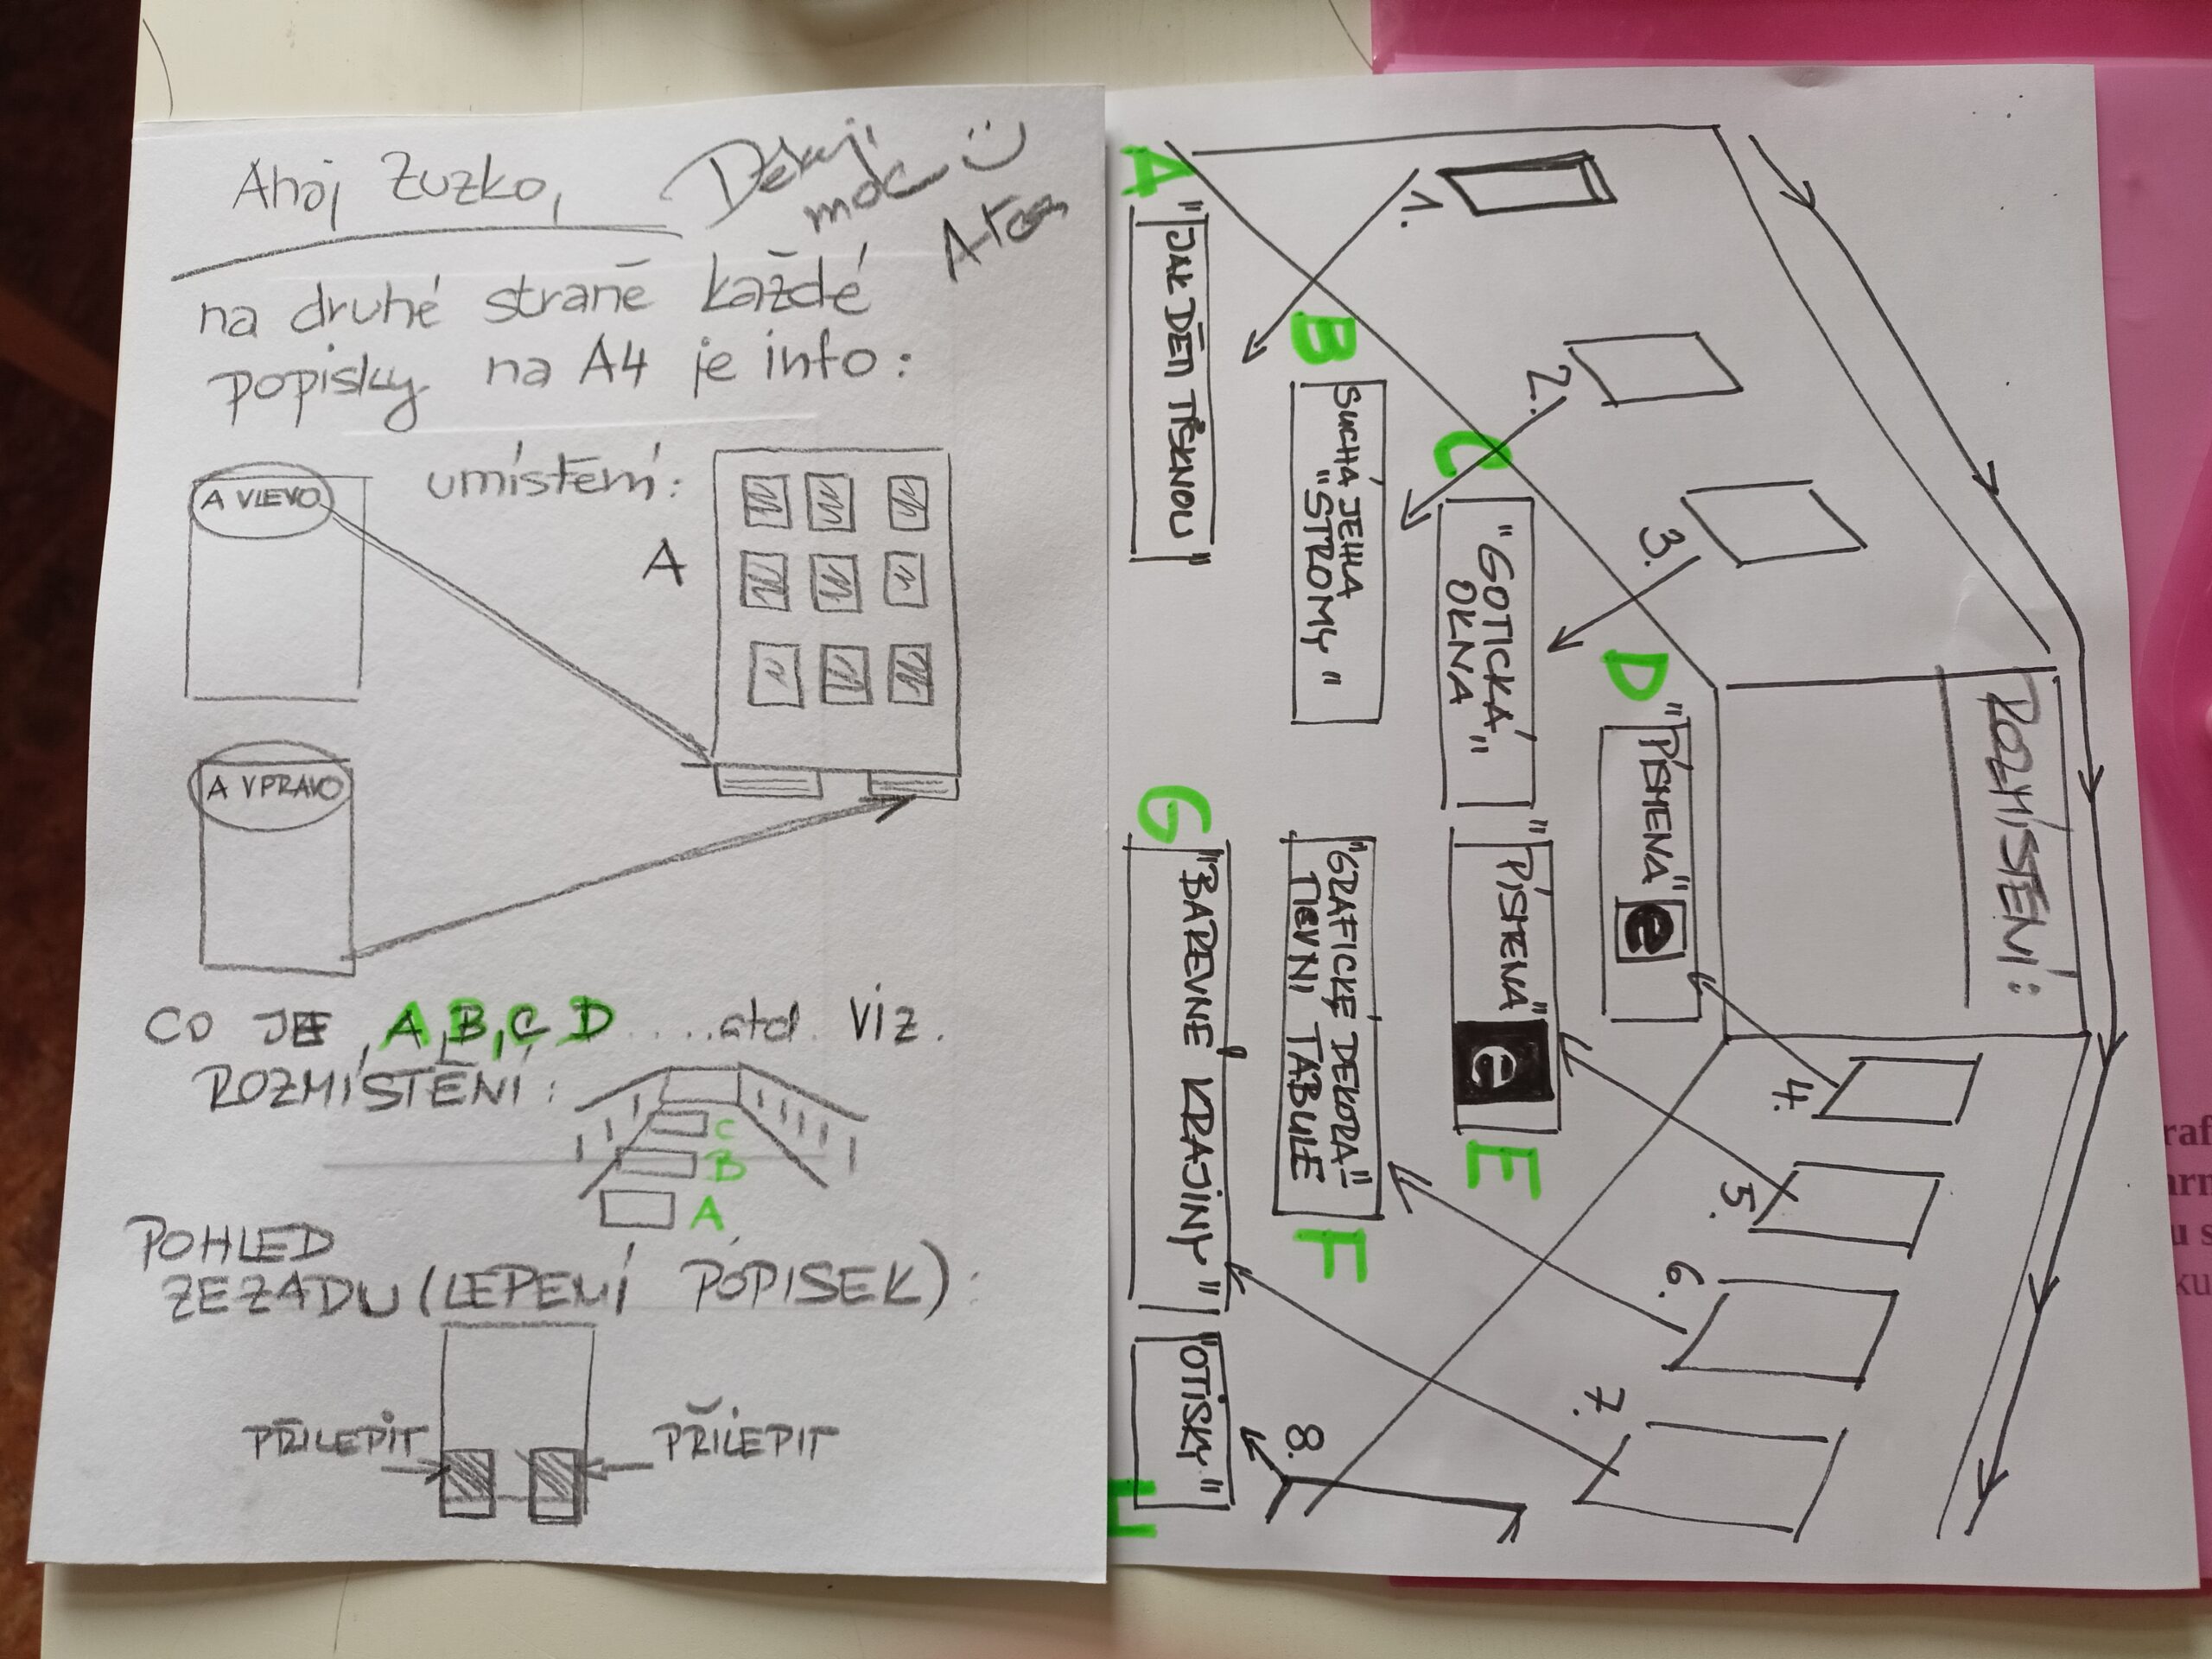 Ahoj Zuzko,
Děkuji
moc
na druhé straně každé
popisky na A4 je info:
umístění:
A VLEVO
A
A VPRAVO
CO JE A, B, C D.....atd. viz.
ROZMÍSTĚNÍ:
C
B
A
POHLED
ZEZADU (LEPENÍ POPISEK):
PŘILEPIT
PŘILEPIT
ROZMÍSTĚNÍ:
1.
2.
3.
4.
5.
6.
7.
8.
A
"JAK DĚTI TISKNOU"
B
SUCHÁ JEHLA
"STROMY"
C
"GOTICKÁ
OKNA"
D
"PÍSMENA" e
"PÍSMENA" e
E
"GRAFICKÉ DEKORA-"
TIVNÍ TABULE
F
G
"BAREVNÉ KRAJINY"
"OTISKY"
H
raf
arn
u s
ku